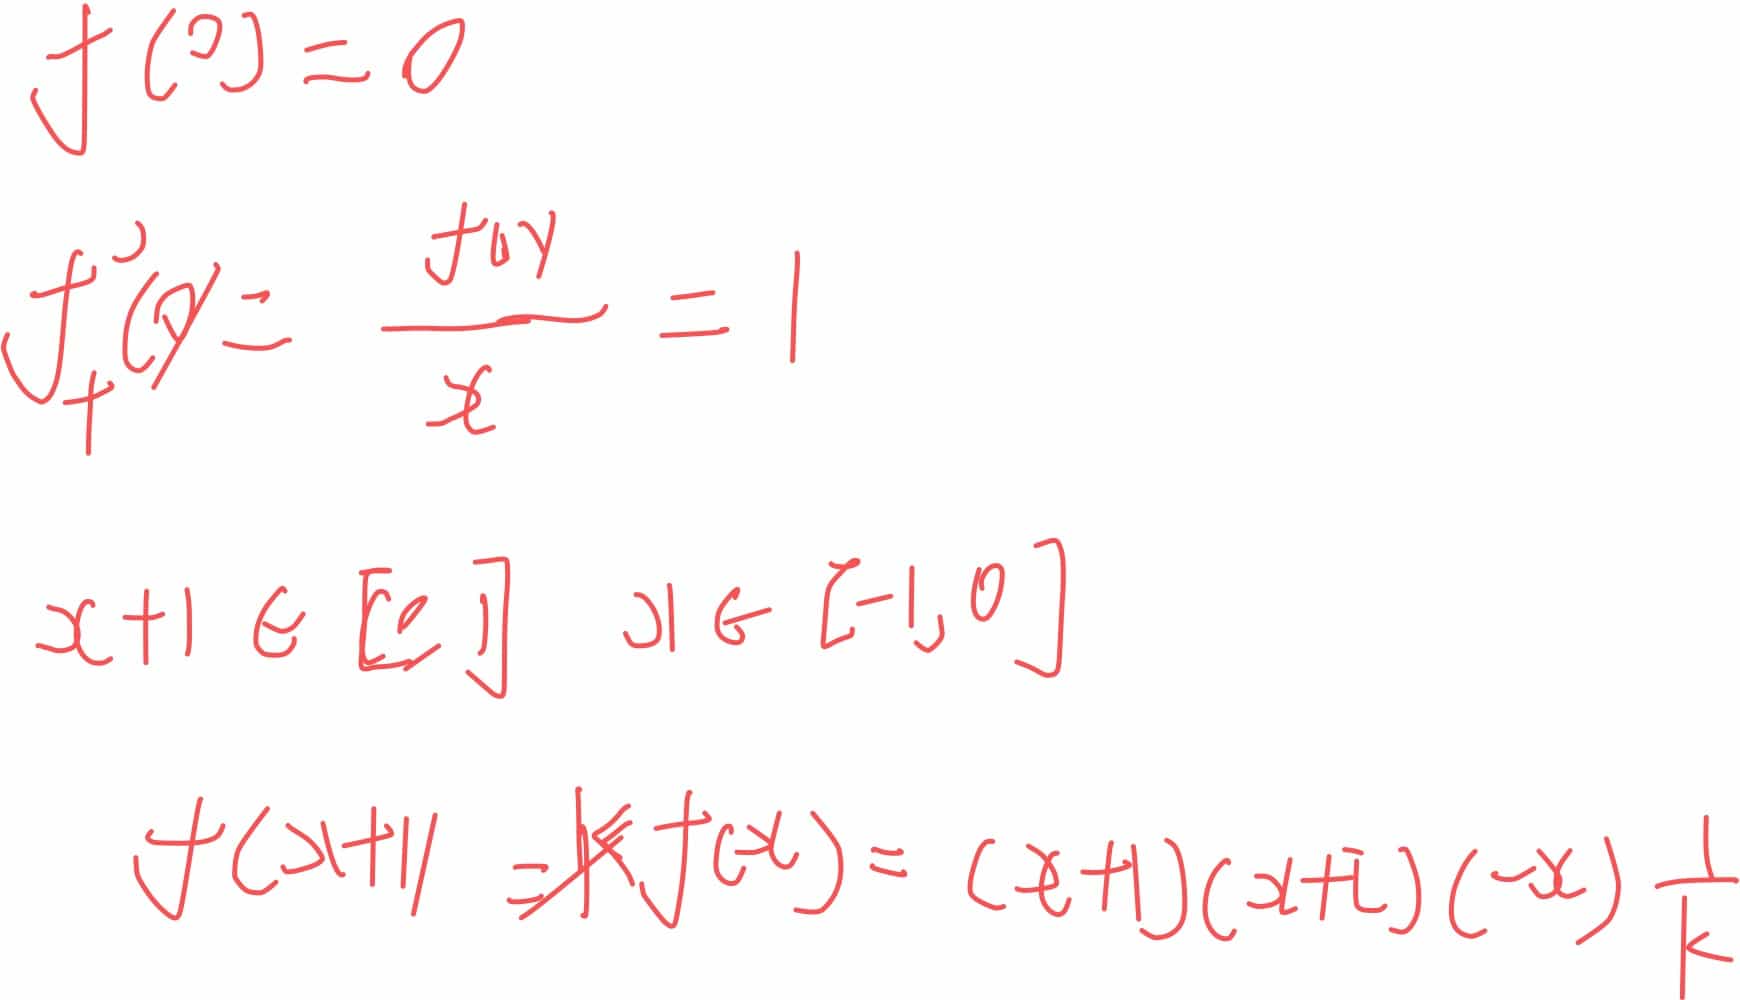 f(0)=0
f'₊(0)= f(x)/x =1
x+1∈[0,1] x∈[-1,0]
f(x+1) = f(x)=(x+1)(x+1)(-x) 1/k